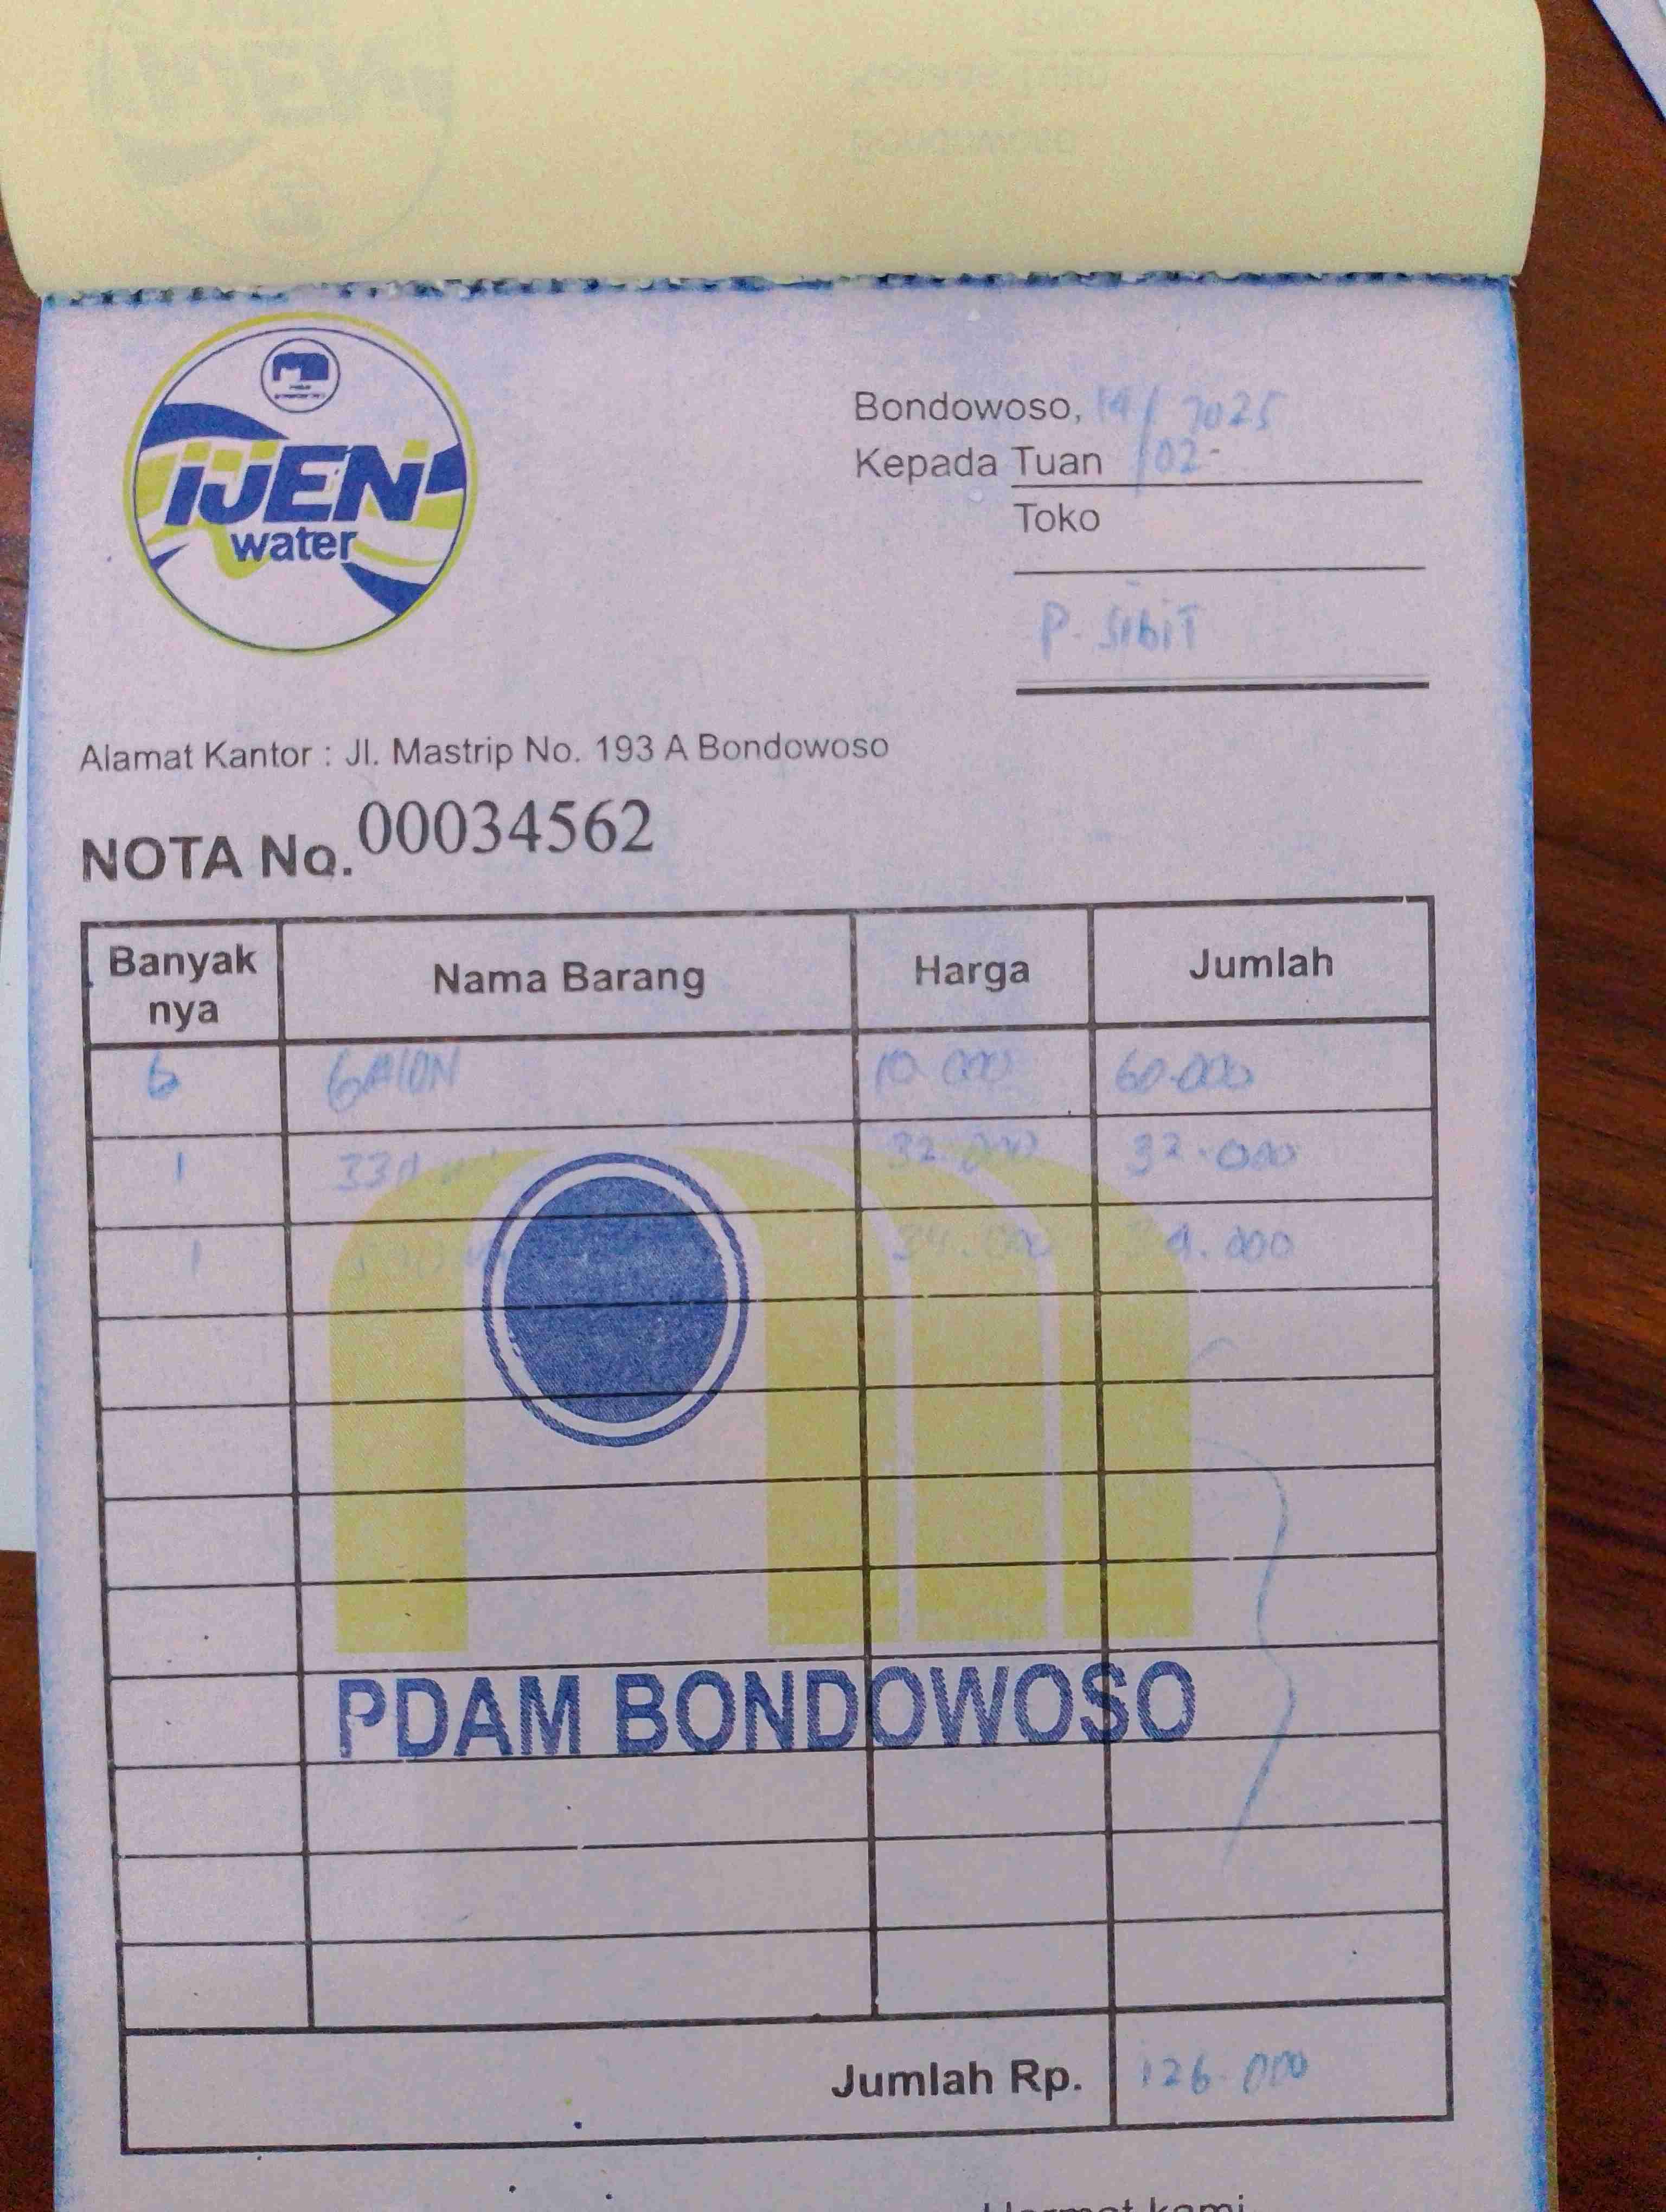 iJEN
water
Bondowoso, 14/02-2025
Kepada Tuan
Toko
P. SibiT
Alamat Kantor : Jl. Mastrip No. 193 A Bondowoso
NOTA No. 00034562
Banyak nya Nama Barang Harga Jumlah
6 GAlON 10.000 60.000
1 330 ml 32.000 32.000
1 34.000 34.000
PDAM BONDOWOSO
Jumlah Rp. 126.000